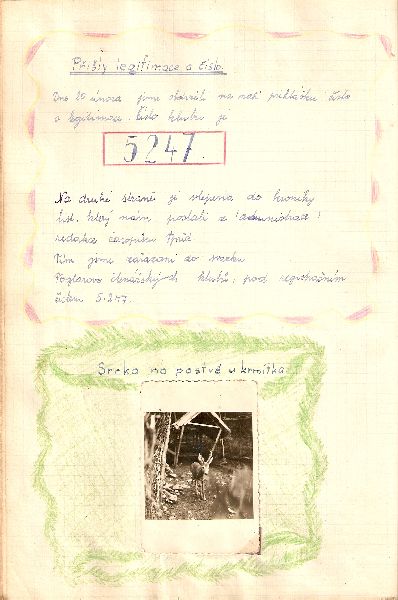 Přišly legitimace a číslo.
Dne 20 února jsme obdrželi na naší přihlášku číslo
a legitimace. Číslo klubu je
5247.
Na druhé straně je vlepena do kroniky
list, který nám poslali z (administrace)
redakce časopisu
Tím jsme zařazeni do svazku
čtenářských klubů, pod registračním
číslem 5.247.
Srnka na pastvě u krmítka